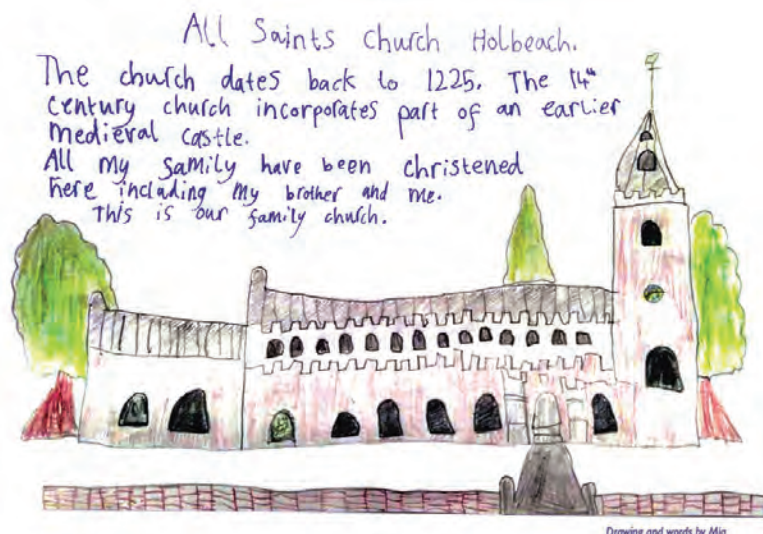 All Saints Church Holbeach.
The church dates back to 1225. The 14th
century church incorporates part of an earlier
medieval castle.
All my family have been christened
here including my brother and me.
This is our family church.
Drawing and words by Mia